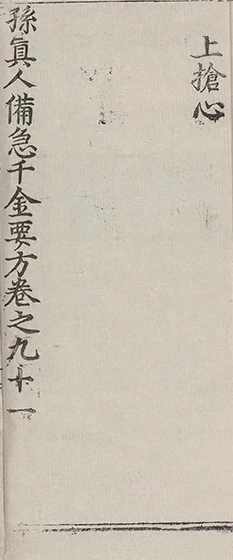 上搶心
孫眞人備急千金要方卷之九十一